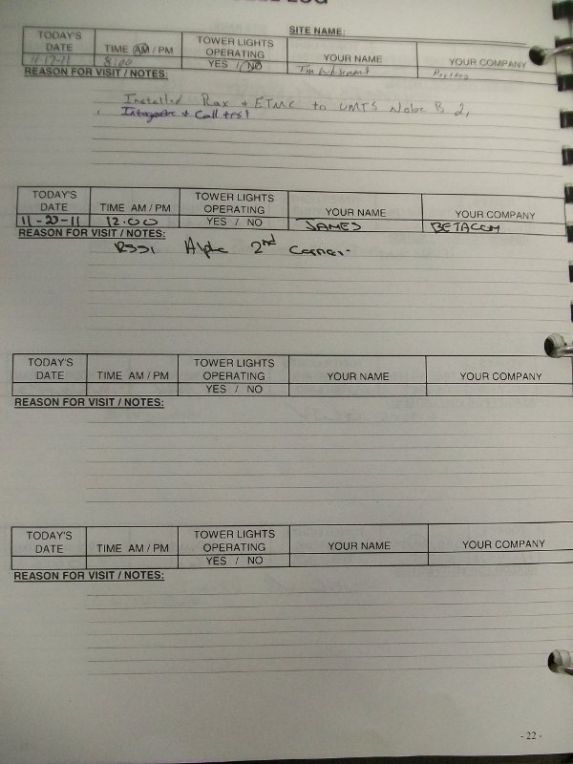 SITE NAME:
TODAY'S DATE TIME AM / PM TOWER LIGHTS OPERATING YOUR NAME YOUR COMPANY
8:00 YES / NO
REASON FOR VISIT / NOTES:
Installed Rax + ETMC to UMTS Nobe B 2,
+ Call test
TODAY'S DATE TIME AM / PM TOWER LIGHTS OPERATING YOUR NAME YOUR COMPANY
11-20-11 12:00 YES / NO JAMES BETACOM
REASON FOR VISIT / NOTES:
RSSI Alpha 2nd Carrier.
TODAY'S DATE TIME AM / PM TOWER LIGHTS OPERATING YOUR NAME YOUR COMPANY
YES / NO
REASON FOR VISIT / NOTES:
TODAY'S DATE TIME AM / PM TOWER LIGHTS OPERATING YOUR NAME YOUR COMPANY
YES / NO
REASON FOR VISIT / NOTES:
- 22 -